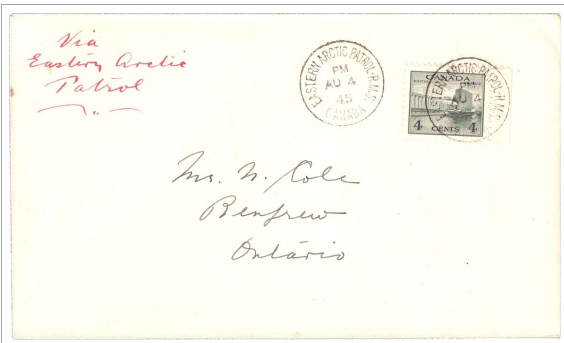 Via
Eastern Arctic
Patrol
EASTERN ARCTIC PATROL-R.M.S.
PM
AU 4
45
CANADA
CANADA
4 CENTS 4
EASTERN ARCTIC PATROL-R.M.S.
PM
AU 4
Mr. N. Cole
Renfrew
Ontario